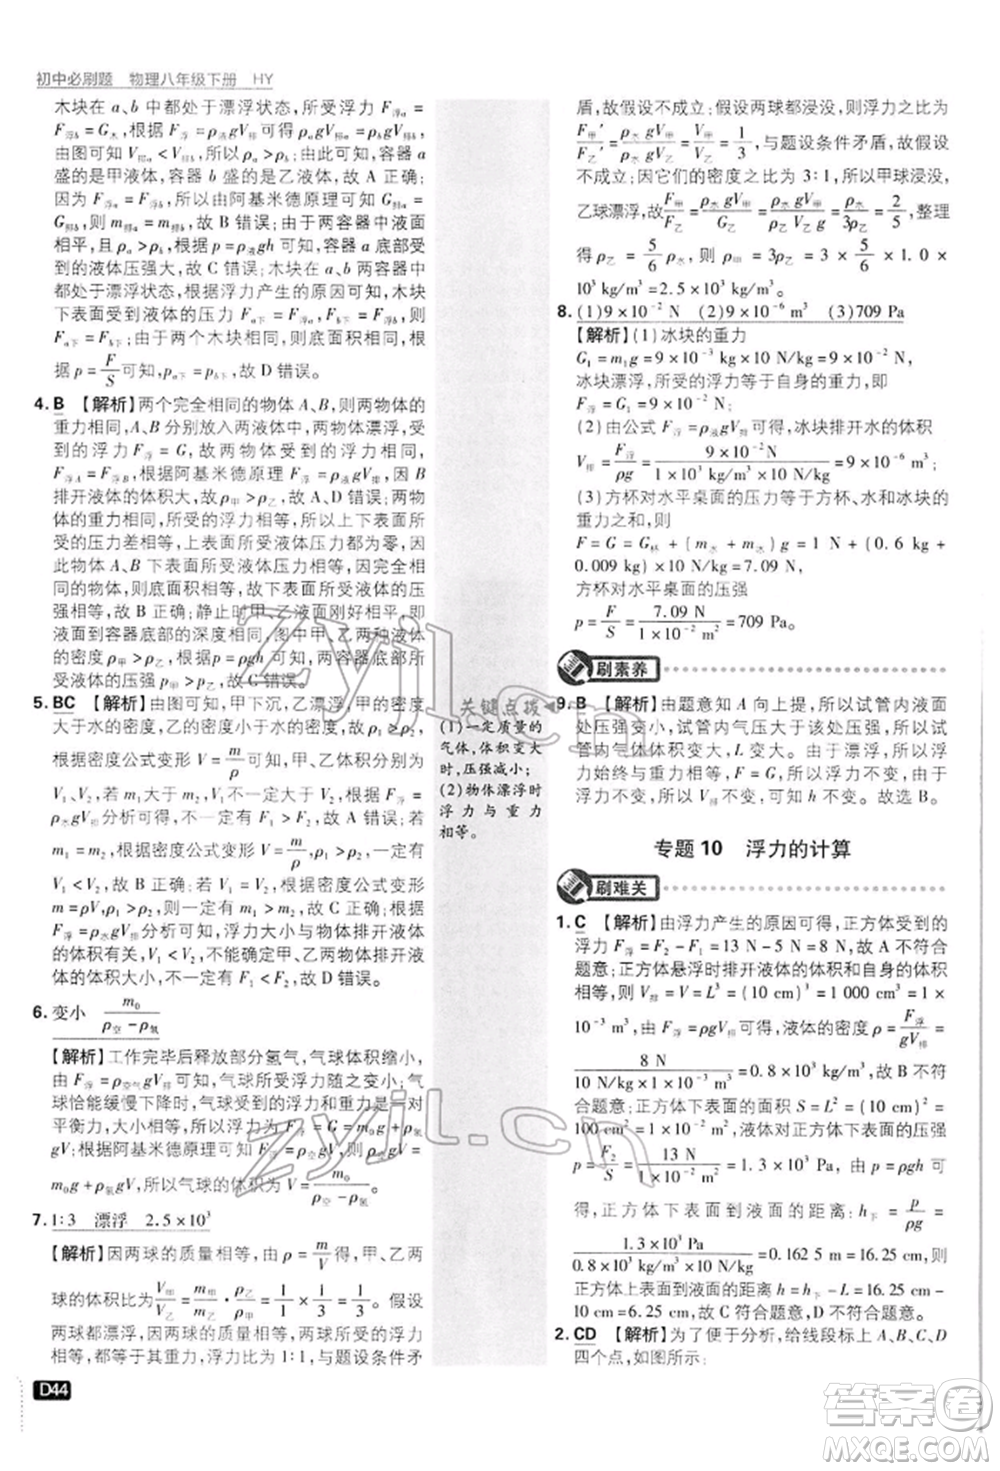 初中必刷题 物理八年级下册 HY
木块在 a、b 中都处于漂浮状态，所受浮力 F浮a =
F浮b = G木，根据 F浮 = ρ液gV排可得 ρagV排a = ρbgV排b，
由图可知 V排a < V排b，所以 ρa > ρb；由此可知，容器 a
盛的是甲液体，容器 b 盛的是乙液体，故 A 正确；
因为 F浮a = F浮b，根据阿基米德原理可知 G排a =
G排b，所以 m排a = m排b，故 B 错误；由于两容器中液面
相平，且 ρa > ρb，根据 p = ρgh 可知，容器 a 底部受
到的液体压强大，故 C 错误；木块在 a、b 两容器中
都处于漂浮状态，根据浮力产生的原因可知，木块
下表面受到液体的压力 Fa下 = F浮a，Fb下 = F浮b，所
以 Fa下 = Fb下，由于两个木块相同，底面积相同，根
据 p = F/S 可知，pa下 = pb下，故 D 错误。
4. B 【解析】两个完全相同的物体 A、B，则两物体的
重力相同，A、B 分别放入两液体中，两物体漂浮，则
受到的浮力 F浮 = G，故两物体受到的浮力相等，
F浮A = F浮B，根据阿基米德原理 F浮 = ρ液gV排，因 B
排开液体的体积大，故 ρ甲 > ρ乙，故 D 错误；两物
体的重力相同，所受的浮力相等，由于下表面所受
的压力差相等，上表面所受液体压力都为零，因此
A、B 下表面所受液体压力相等，故下表面受到的压
强相等，故 B 正确；静止时甲、乙液面相平，则液
面到容器底部的深度相同，图中甲、乙底部所处的深
度相同，ρ甲 > ρ乙，根据 p = ρgh 可知，容器底部受到的
压强 p甲 > p乙，故 C 错误。
5. BC 【解析】由图可知，甲下沉，乙漂浮，甲的密度
大于水的密度，乙的密度小于水的密度，故 A 错误；
根据密度公式变形 V = m/ρ 可知，甲、乙体积分别为
V1、V2，V1 > V2，乙漂浮，甲全部浸没，根据 F浮 =
ρ水gV排可知，V排越小，浮力越小，则 F1 > F2，故 B 正确；
根据密度公式变形 V = m/ρ 和图示可知，密度公式
m = ρV，则 m1 > m2，故 C 正确；根据 F浮 =
ρ水gV排分析可知，浮力大小与实心物体排开液体
的体积有关，V排不能确定，故不能确定浮力大小，
F1 可能大于 F2，也有可能 F1 < F2，故 D 错误。
6. 变小 m0/(ρ空 − ρ氢)
【解析】工作完毕后释放部分氢气，气球体积缩小，
由 F浮 = ρ空气gV可知，气球所受的浮力变小；若气
球恰能缓慢下降时，气球受到的浮力和重力是一对
平衡力，大小相等，即 F浮 = G总 = G0 + G氢 =
m0g + ρ氢gV，由阿基米德原理知，浮力 F浮 = ρ空gV =
m0g + ρ氢gV，所以气球的体积为 V = m0/(ρ空 − ρ氢)。
7. 1∶3 漂浮 2.5 × 10³
【解析】因两球的质量相等，由 ρ = m/V 得，甲、乙两
球的体积之比为 V甲/V乙 = m甲/m乙 · ρ乙/ρ甲 = 1/1 × 1/3 = 1/3。假设
两球都漂浮，因两球的质量相等，受到的浮力
相等，都等于其重力，浮力比为 1∶1，与题设条件矛
D44
关键点拨
(1)一定质量的
气体，体积变大
时，压强减小；
(2)物体漂浮时
浮力与重力
相等。
盾，故假设不成立；假设两球都浸没，浮力之比为
F甲′/F乙′ = ρ水gV甲/ρ水gV乙 = V甲/V乙 = 1/3，与题设条件矛盾，故假设
不成立；因它们的密度之比为 3∶1，所以甲球浸没，
乙球漂浮，故 F甲/F乙 = ρ水gV甲/G乙 = ρ水gV甲/ρ乙gV乙 = ρ水/3ρ乙 = 2/5，整理
得 ρ乙 = 5/6 ρ水，所以 ρ甲 = 3ρ乙 = 3 × 5/6 × 1.0 ×
10³ kg/m³ = 2.5 × 10³ kg/m³。
8. (1)9 × 10⁻² N (2)9 × 10⁻⁶ m³ (3)709 Pa
【解析】(1) 冰块的重力
G1 = m1g = 9 × 10⁻³ kg × 10 N/kg = 9 × 10⁻² N，
冰块漂浮，所受的浮力等于自身重力，即
F浮 = G1 = 9 × 10⁻² N；
(2) 由公式 F浮 = ρ液gV排可得，冰块排开水的体积
V排 = F浮/ρg = 9 × 10⁻² N/(1 × 10³ kg/m³ × 10 N/kg) = 9 × 10⁻⁶ m³；
(3) 方杯对水平桌面的压力等于方杯、水和冰块的
重力之和，则
F = G = G杯 + (m水 + m冰)g = 1 N + (0.6 kg +
0.009 kg) × 10 N/kg = 7.09 N，
方杯对水平桌面的压强
p = F/S = 7.09 N/(1 × 10⁻² m²) = 709 Pa。
刷素养
9. B 【解析】由题意知 A 向上提，所以试管内液面
处压强变小，试管内气压大于该处压强，所以试
管内气体体积变大，L 变大。由于漂浮，所以浮
力始终与重力相等，所以浮力不变，由于浮力不
变，排开液体体积不变，所以 h 不变。故选 B。
专题 10 浮力的计算
刷难关
1. C 【解析】由浮力产生的原因可得，正方体受到的
浮力 F浮 = F2 − F1 = 13 N − 5 N = 8 N，故 A 不符合
题意；正方体悬浮时排开液体的体积和自身的体积
相等，则 V排 = V = L³ = (10 cm)³ = 1 000 cm³ = 1 ×
10⁻³ m³，由 F浮 = ρgV排可得，液体的密度 ρ = F浮/gV排 =
8 N/(10 N/kg × 1 × 10⁻³ m³) = 0.8 × 10³ kg/m³，故 B 不符
合题意；正方体下表面的面积 S = L² = (10 cm)² =
100 cm² = 1 × 10⁻² m²，液体对正方体下表面的压强
p = F2/S = 13 N/(1 × 10⁻² m²) = 1.3 × 10³ Pa，由 p = ρgh 可
得，正方体下表面到液面的距离：h下 = p/ρg =
1.3 × 10³ Pa/(0.8 × 10³ kg/m³ × 10 N/kg) = 0.162 5 m = 16.25 cm，则
正方体上表面到液面的距离 h = h下 − L = 16.25 cm −
10 cm = 6.25 cm，故 C 符合题意，D 不符合题意。
2. CD 【解析】为了便于分析，给线段标上 A、B、C、D
四个点，如图所示：
zyjl.cn
zyjl.cn
答案圈
MXQE.COM